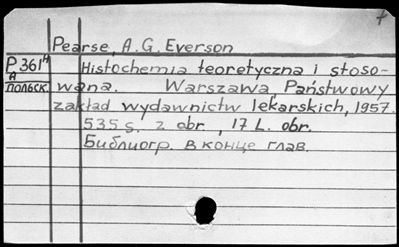 Pearse, A.G. Everson
P 361 н Histochemia teoretyczna i stoso-
A
польск. wana. Warszawa, Państwowy
zakład wydawnictw lekarskich, 1957.
535 s. z obr., 17 L. obr.
Библиогр. в конце глав.